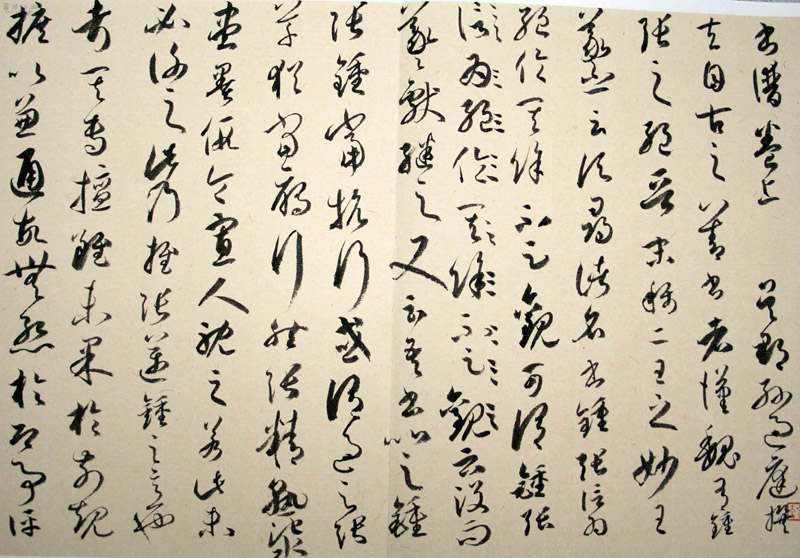 書譜卷上 吳郡孫過庭撰
夫自古之善書者漢魏有鍾
張之絕晉末稱二王之妙王
羲之云頃尋諸名書鍾張信為
絕倫其餘不足觀可謂鍾張
信為絕倫其餘不足觀云沒而
羲獻繼之又云吾書比之鍾
張鍾當抗行或謂過之張
草猶當雁行然張精熟池水
盡墨假令寡人耽之若此未
必謝之此乃推張邁鍾之意也
考其專擅雖未果於前規
摭以兼通故無慚於即事評